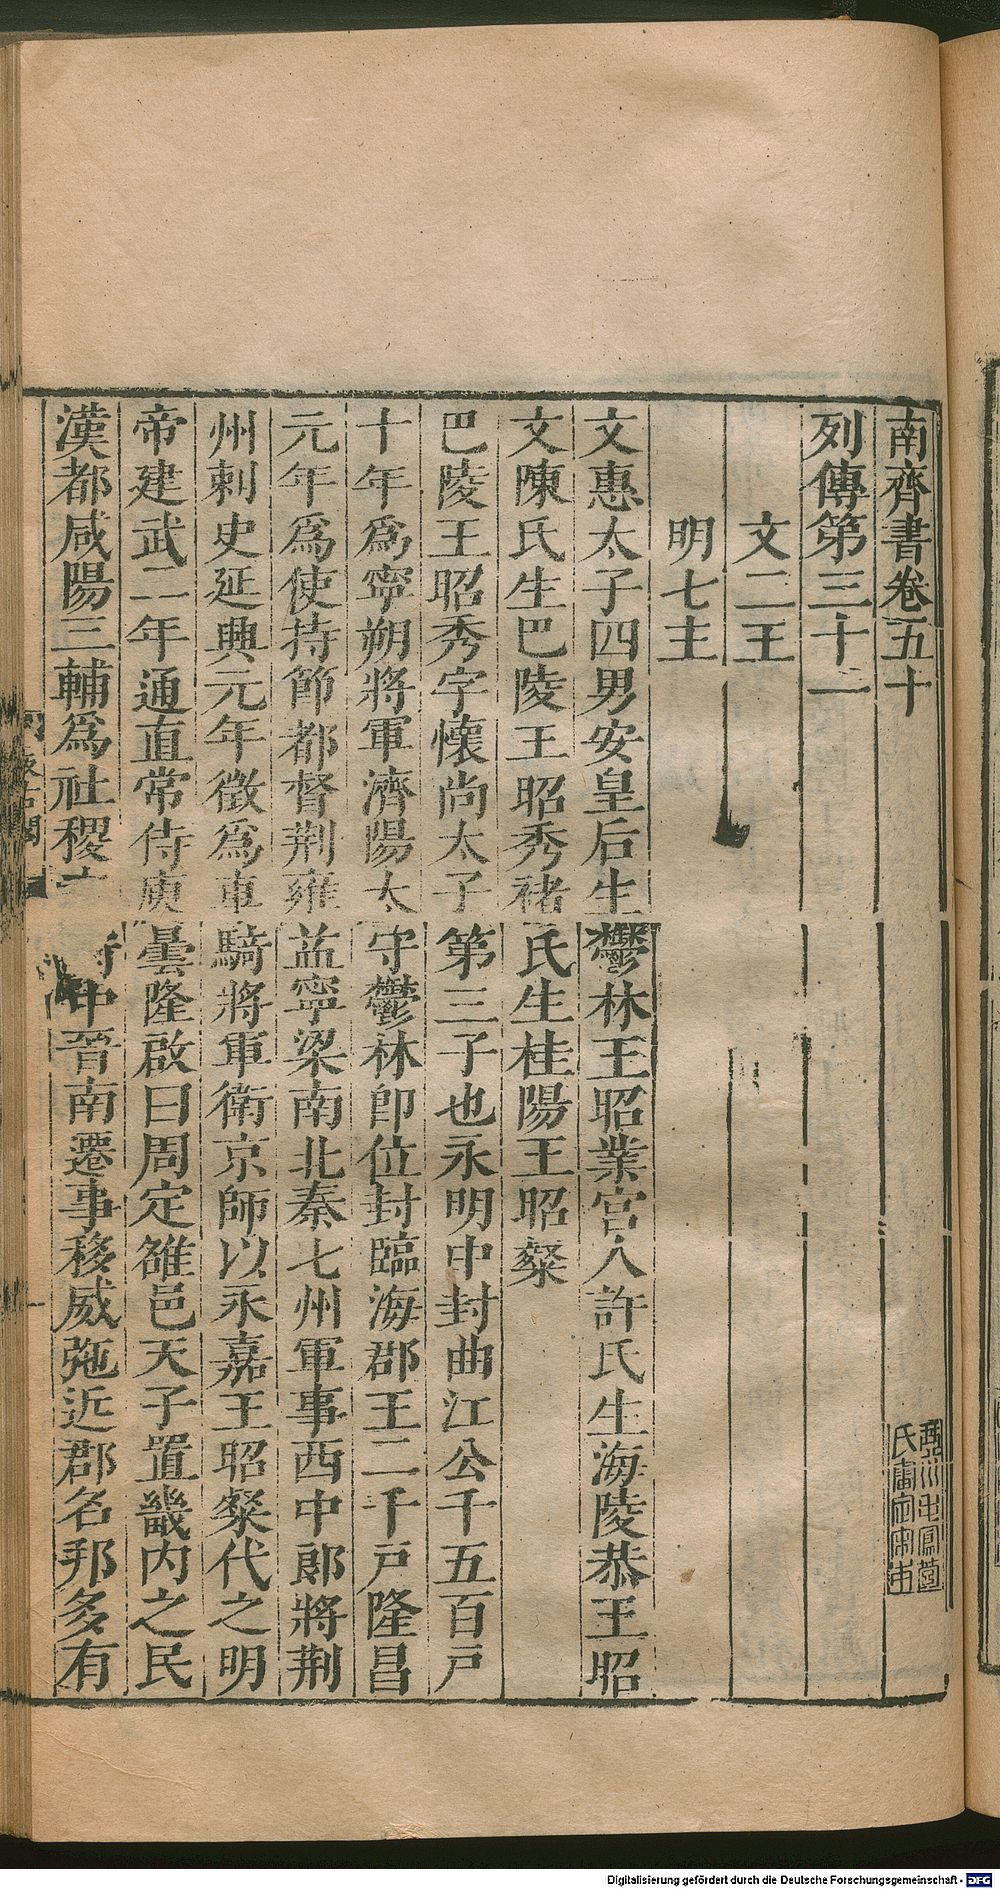 南齊書卷五十
列傳第三十一
文二王
明七王
文惠太子四男安皇后生鬱林王昭業宮人許氏生海陵恭王昭
文陳氏生巴陵王昭秀褚氏生桂陽王昭粲
巴陵王昭秀字懷尚太子第三子也永明中封曲江公千五百戶
十年爲寧朔將軍濟陽太守鬱林即位封臨海郡王二千戶隆昌
元年爲使持節都督荆雍益寧梁南北秦七州軍事西中郎將荆
州刺史延興元年徵爲車騎將軍衛京師以永嘉王昭粲代之明
帝建武二年通直常侍庾曇隆啟曰周定雒邑天子置畿內之民
漢都咸陽三輔爲社稷中晉南遷事移威弛近郡名邦多有
汲古閣
Digitalisierung gefördert durch die Deutsche Forschungsgemeinschaft - DFG